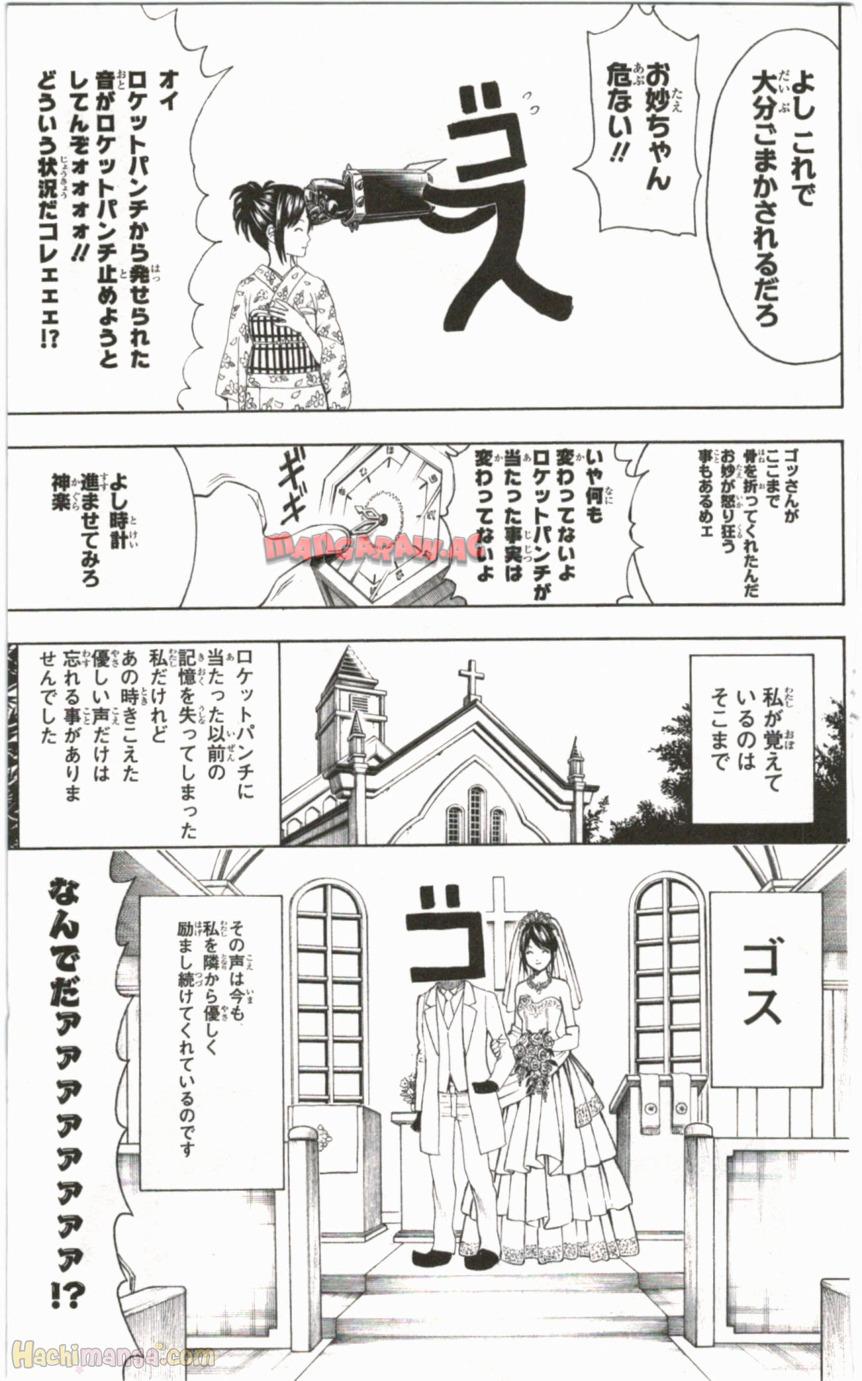 よし これで
大分ごまかされるだろ
お妙ちゃん
危ない!!
ゴス
オイ
ロケットパンチから発せられた
音がロケットパンチ止めようと
してんぞォォォォ!!
どういう状況だコレェェェ!?
ゴッさんが
ここまで
骨を折ってくれたんだ
お妙が怒り狂う
事もあるめェ
いや何も
変わってないよ
ロケットパンチが
当たった事実は
変わってないよ
ギギ
よし時計
進ませてみろ
神楽
MANGARAW.AC
私が覚えて
いるのは
そこまで
ロケットパンチに
当たった以前の
記憶を失ってしまった
私だけれど
あの時きこえた
優しい声だけは
忘れる事がありま
せんでした
ゴス
ゴ
その声は今も
私を隣から優しく
励まし続けてくれているのです
なんでだァァァァァァァ!?
Hachimanga.com